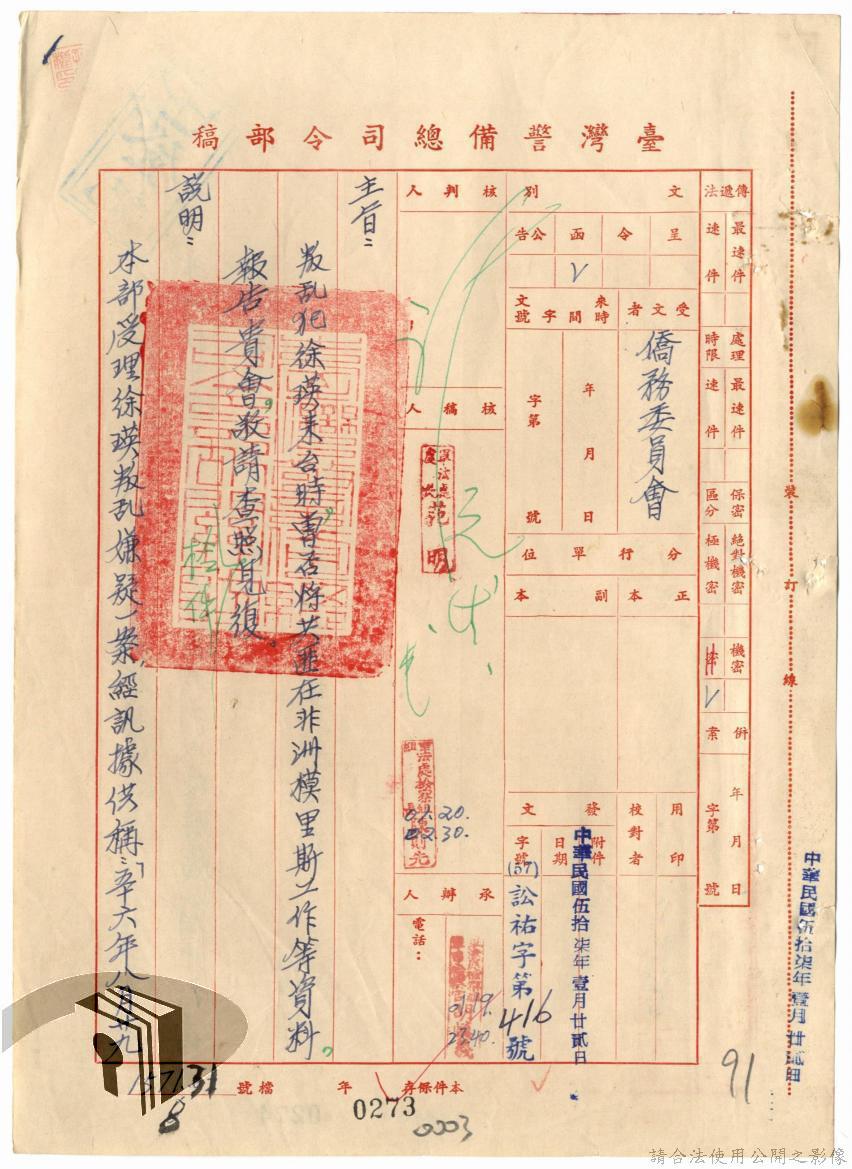 臺灣警備總司令部稿
傳遞法
最速件
速件
處理時限
最速件
速件
保密區分
絕對機密
極機密
機密
密
併案
年月日
字第 號
文別
呈
令
函
公告
受文者
僑務委員會
來文時間字號
年月日
字第 號
分行單位
正本
副本
用印
校對者
發文
附件
日期
字號
中華民國伍拾柒年壹月廿貳日
(57)訟祐字第416號
核判人
核稿人
范明
01.20.
02.30.
承辦人
電話：
01.19.
主旨：
叛乱犯徐瑛来台時曹否将共匪在非洲模里斯工作等資料
報告貴會，敬請查照見復。
説明：
本部受理徐瑛叛乱嫌疑一案，經訊據供稱：「五十六年八月廿九
裝訂線
中華民國伍拾柒年壹月廿貳日
91
本件保存 年 檔號
157131
8
0273
0003
請合法使用公開之影像